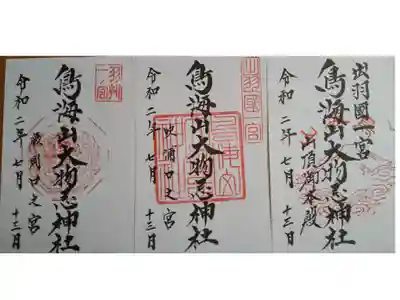 出羽國一宮
鳥海山大物忌神社
山頂御本殿
令和二年七月十三日
鳥海山大物忌神社
吹浦口之宮
令和二年七月十三日
鳥海山大物忌神社
蕨岡口之宮
令和二年七月十三日